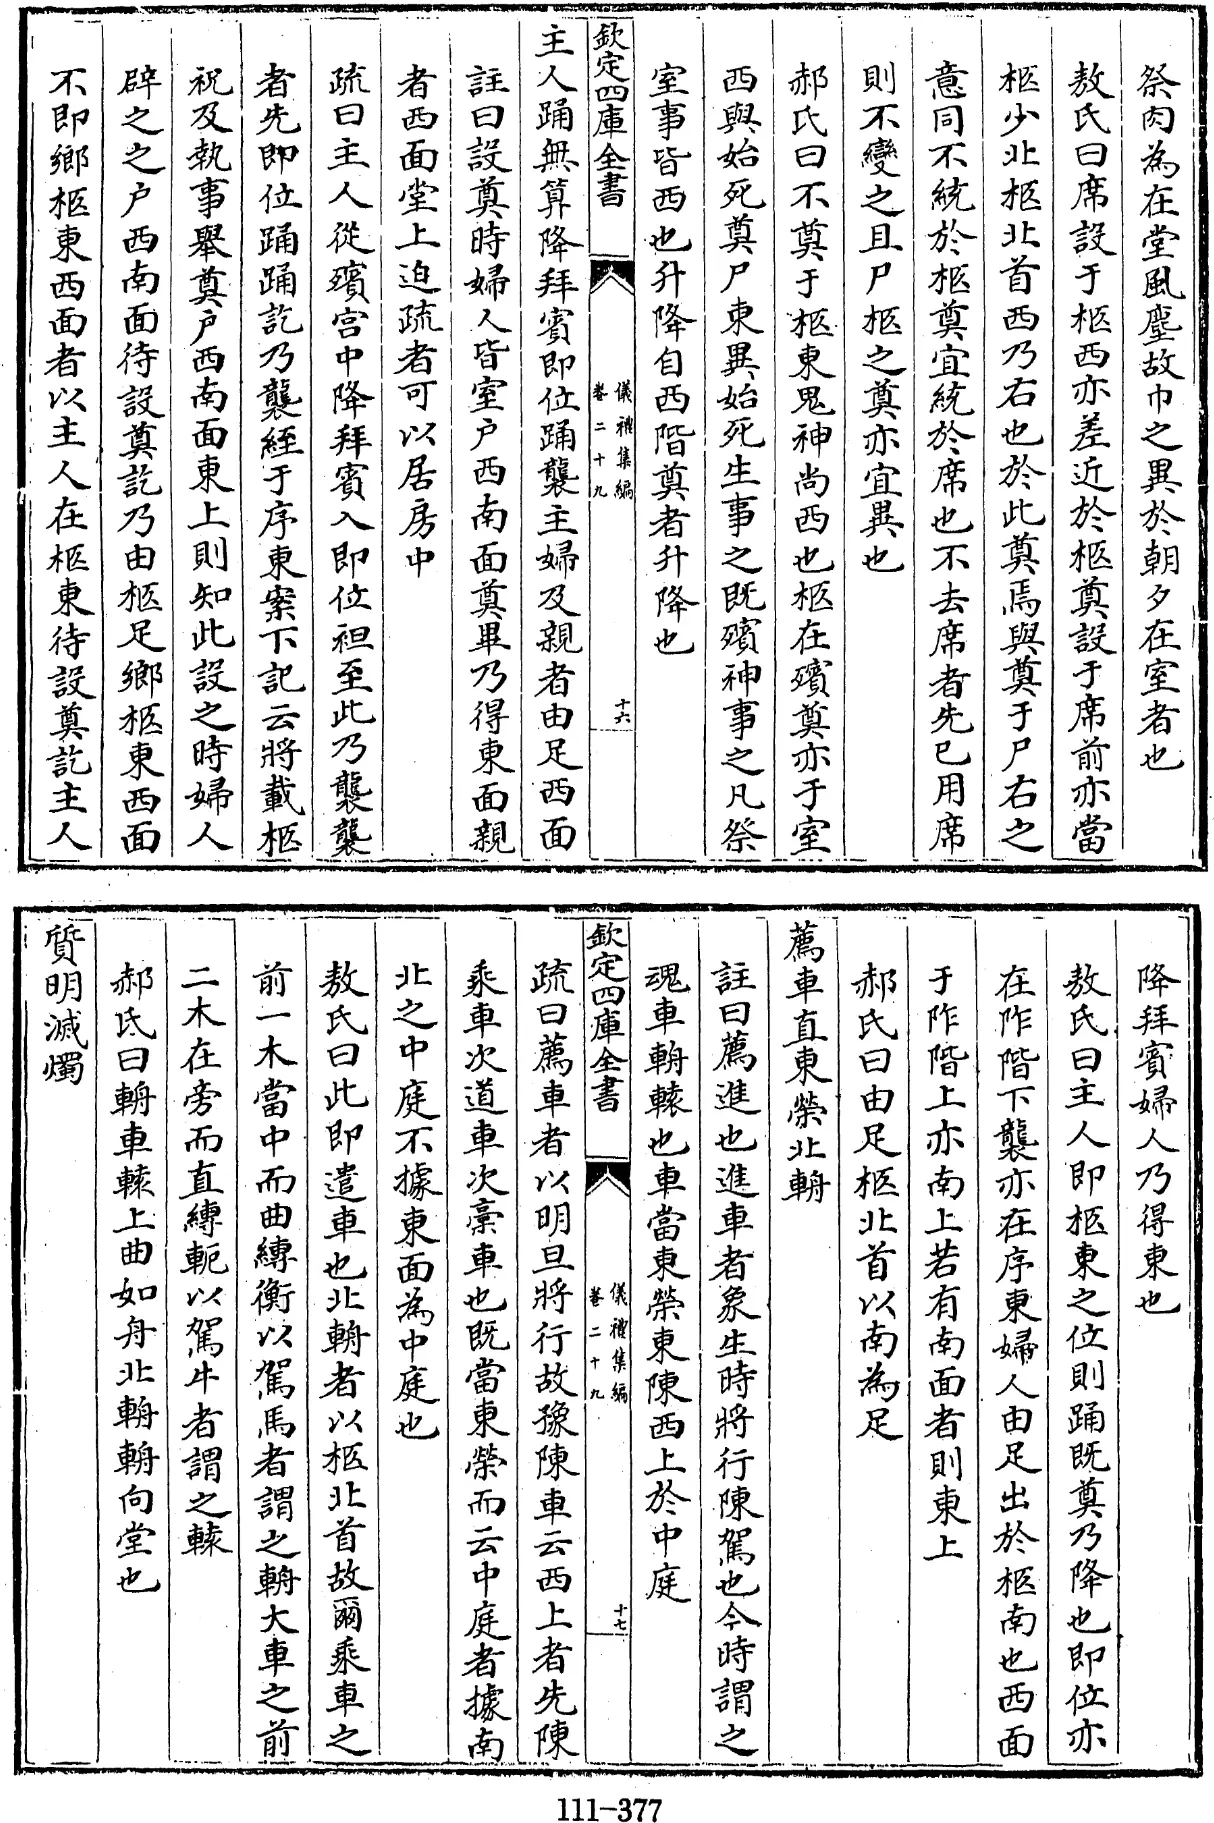 祭肉為在堂風塵故巾之異於朝夕在室者也
敖氏曰席設于柩西亦差近於柩奠設于席前亦當
柩少北柩北首西乃右也於此奠焉與奠于尸右之
意同不統於柩奠宜統於席也不去席者先已用席
則不變之且尸柩之奠亦宜異也
郝氏曰不奠于柩東鬼神尚西也柩在殯奠亦于室
西與始死奠尸東異始死生事之既殯神事之凡祭
室事皆西也升降自西階奠者升降也
欽定四庫全書
儀禮集編
卷二十九
十六
主人踊無算降拜賓即位踊襲主婦及親者由足西面
註曰設奠時婦人皆室户西南面奠畢乃得東面親
者西面堂上迫疏者可以居房中
疏曰主人從殯宮中降拜賓入即位袒至此乃襲襲
者先即位踊踊訖乃襲絰于序東案下記云將載柩
祝及執事舉奠户西南面東上則知此設之時婦人
辟之之户西南面待設奠訖乃由柩足鄉柩東西面
不即鄉柩東西面者以主人在柩東待設奠訖主人
降拜賓婦人乃得東也
敖氏曰主人即柩東之位則踊既奠乃降也即位亦
在阼階下襲亦在序東婦人由足出於柩南也西面
于阼階上亦南上若有南面者則東上
郝氏曰由足柩北首以南為足
薦車直東榮北輈
註曰薦進也進車者象生時將行陳駕也今時謂之
魂車輈轅也車當東榮東陳西上於中庭
欽定四庫全書
儀禮集編
卷二十九
十七
疏曰薦車者以明旦將行故豫陳車云西上者先陳
乘車次道車次槀車也既當東榮而云中庭者據南
北之中庭不據東面為中庭也
敖氏曰此即遣車也北輈者以柩北首故爾乘車之
前一木當中而曲縛衡以駕馬者謂之輈大車之前
二木在旁而直縛軛以駕牛者謂之轅
郝氏曰輈車轅上曲如舟北輈輈向堂也
質明滅燭
111-377